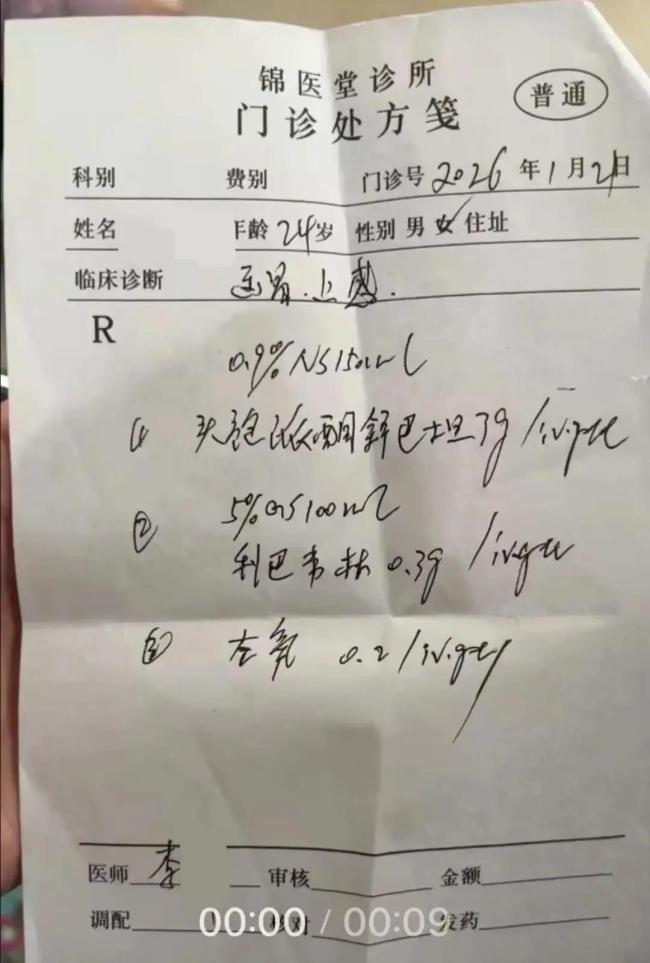 锦医堂诊所
门诊处方笺 普通
科别 费别 门诊号 2026 年 1 月 21 日
姓名 年龄 24 岁 性别 男 女 ✓ 住址
临床诊断 上感.
R
0.9% NS 150ml
① 头孢哌酮舒巴坦 3g / iv.gtt
5% GS 100ml
② 利巴韦林 0.3g / iv.gtt
③ 左氧 0.2 / iv.gtt
医师 李 审核 金额
调配 核对 发药
00:00 / 00:09